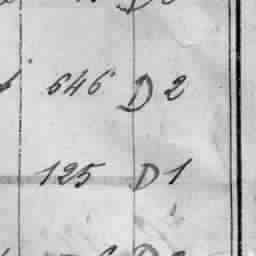 646 D 2
125 D 1